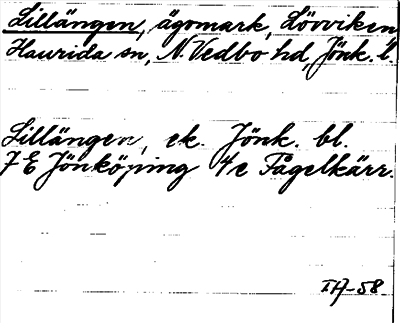 Lillängen, ägomark, Lövviken
Haurida sn, N. Vedbo hd, Jönk. l.
Lillängen, ek. Jönk. bl.
7 E Jönköping 4 e Fågelkärr.
IA-58